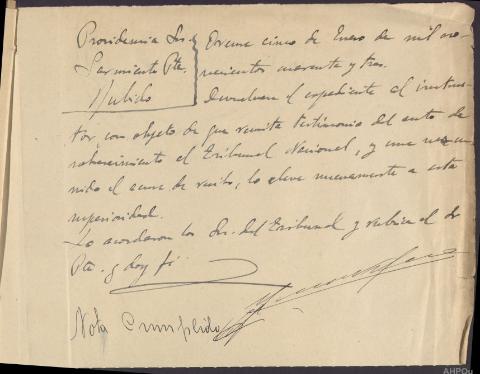 Providencia Srs.
Sarmiento Pte.
Nubido
Orense cinco de Enero de mil no-
vecientos cuarenta y tres.
Devuélvase el expediente al instruc-
tor con objeto de que remita testimonio del auto de
sobreseimiento al Tribunal Nacional, y una vez
nido el acuse de recibo, lo eleve nuevamente a esta
superioridad.
Lo acordaron los Srs. del Tribunal y rubrica el Sr
Pte. y doy fé.
Nota Cumplido
AHPOu